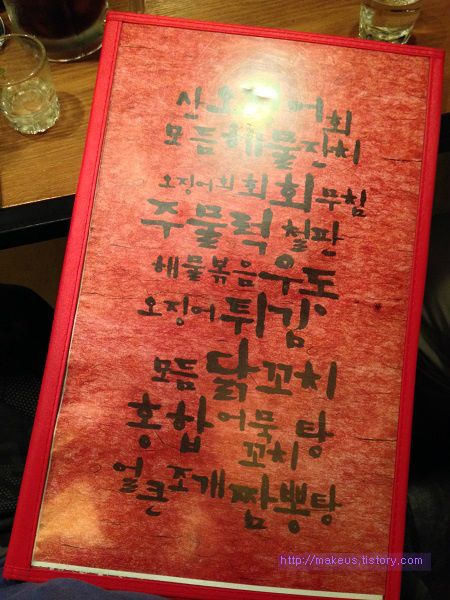 산오징어회
모듬해물잔치
오징어회 회무침
주물럭철판
해물볶음우동
오징어튀김
모듬닭꼬치
홍합어묵탕
꼬치
얼큰조개짬뽕탕
http://makeus.tistory.com